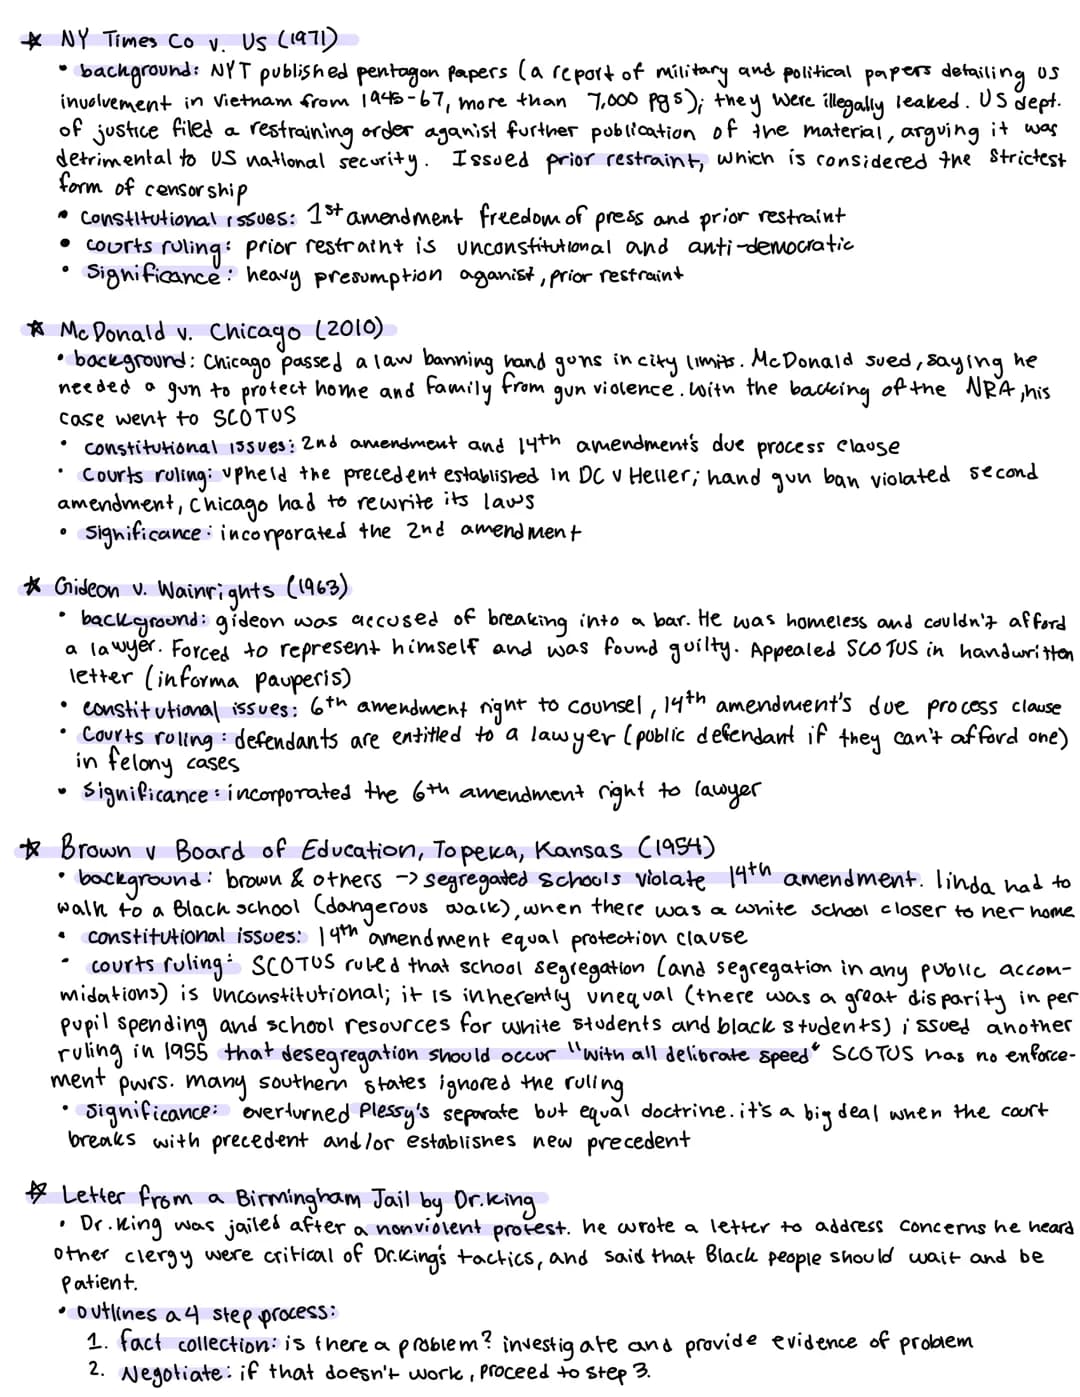 ☆ NY Times Co v. US (1971)
• background: NYT published pentagon papers (a report of military and political papers detailing US
involvement in Vietnam from 1945-67, more than 7,000 pgs); they were illegally leaked. US dept.
of justice filed a restraining order aganist further publication of the material, arguing it was
detrimental to US national security. Issued prior restraint, which is considered the strictest
form of censorship
• constitutional issues: 1st amendment freedom of press and prior restraint
• courts ruling: prior restraint is unconstitutional and anti-democratic
• significance: heavy presumption aganist, prior restraint
☆ McDonald v. Chicago (2010)
• background: Chicago passed a law banning hand guns in city limits. McDonald sued, saying he
needed a gun to protect home and family from gun violence. With the backing of the NRA, his
case went to SCOTUS
• constitutional issues: 2nd amendment and 14th amendment's due process clause
• courts ruling: upheld the precedent established in DC v Heller; hand gun ban violated second
amendment, Chicago had to rewrite its laws
• significance: incorporated the 2nd amendment
☆ Gideon v. Wainrights (1963)
• background: gideon was accused of breaking into a bar. He was homeless and couldn't afford
a lawyer. Forced to represent himself and was found guilty. Appealed SCOTUS in handwritten
letter (informa pauperis)
• constitutional issues: 6th amendment right to counsel, 14th amendment's due process clause
• Courts ruling: defendants are entitled to a lawyer (public defendant if they can't afford one)
in felony cases
• significance: incorporated the 6th amendment right to lawyer
☆ Brown v Board of Education, Topeka, Kansas (1954)
• background: brown & others -> segregated schools violate 14th amendment. linda had to
walk to a Black school (dangerous walk), when there was a white school closer to her home
• constitutional issues: 14th amendment equal protection clause
• courts ruling: SCOTUS ruled that school segregation (and segregation in any public accom-
midations) is unconstitutional; it is inherently unequal (there was a great disparity in per
pupil spending and school resources for white students and black students) issued another
ruling in 1955 that desegregation should occur "with all delibrate speed" SCOTUS has no enforce-
ment pwrs. many southern states ignored the ruling
• significance: overturned Plessy's separate but equal doctrine. it's a big deal when the court
breaks with precedent and/or establishes new precedent
☆ Letter from a Birmingham Jail by Dr.king
• Dr.King was jailed after a nonviolent protest. he wrote a letter to address concerns he heard
other clergy were critical of Dr.King's tactics, and said that Black people should wait and be
patient.
• outlines a 4 step process:
1. fact collection: is there a problem? investigate and provide evidence of problem
2. Negotiate: if that doesn't work, proceed to step 3.